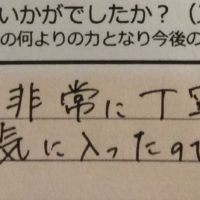 いかがでしたか？（
の何よりの力となり今後の
非常に丁
気に入ったので